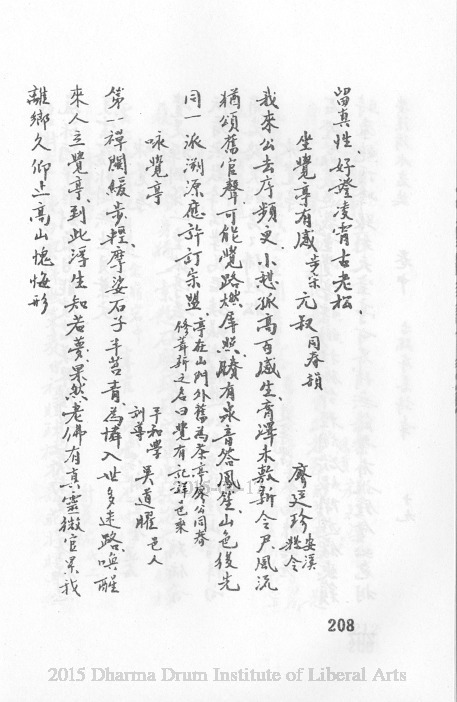 留真性、好證凌霄古老松、
坐覺亭有感 步宗元叔同春韻
廖廷珍 安溪縣令
我來公去序頻更、小憩孤高百感生、膏澤未敷新令尹、風流
猶頌舊官聲、可能覺路燃犀照、勝有泉音答鳳笙、山色後先
同一派、溯源應許訂宗盟、亭在山門外舊為茶亭廖公同春
修葺新之名曰覺有記詳巳乘
咏覺亭
于和學訓導 吳道曜 邑人
第一禪關緩步輕、摩娑石子半苔青、為憐入世多迷路、喚醒
來人立覺亭、到此浮生知若夢、果然老佛有真靈、微官累我
離鄉久、仰止高山愧悔形
208
2015 Dharma Drum Institute of Liberal Arts